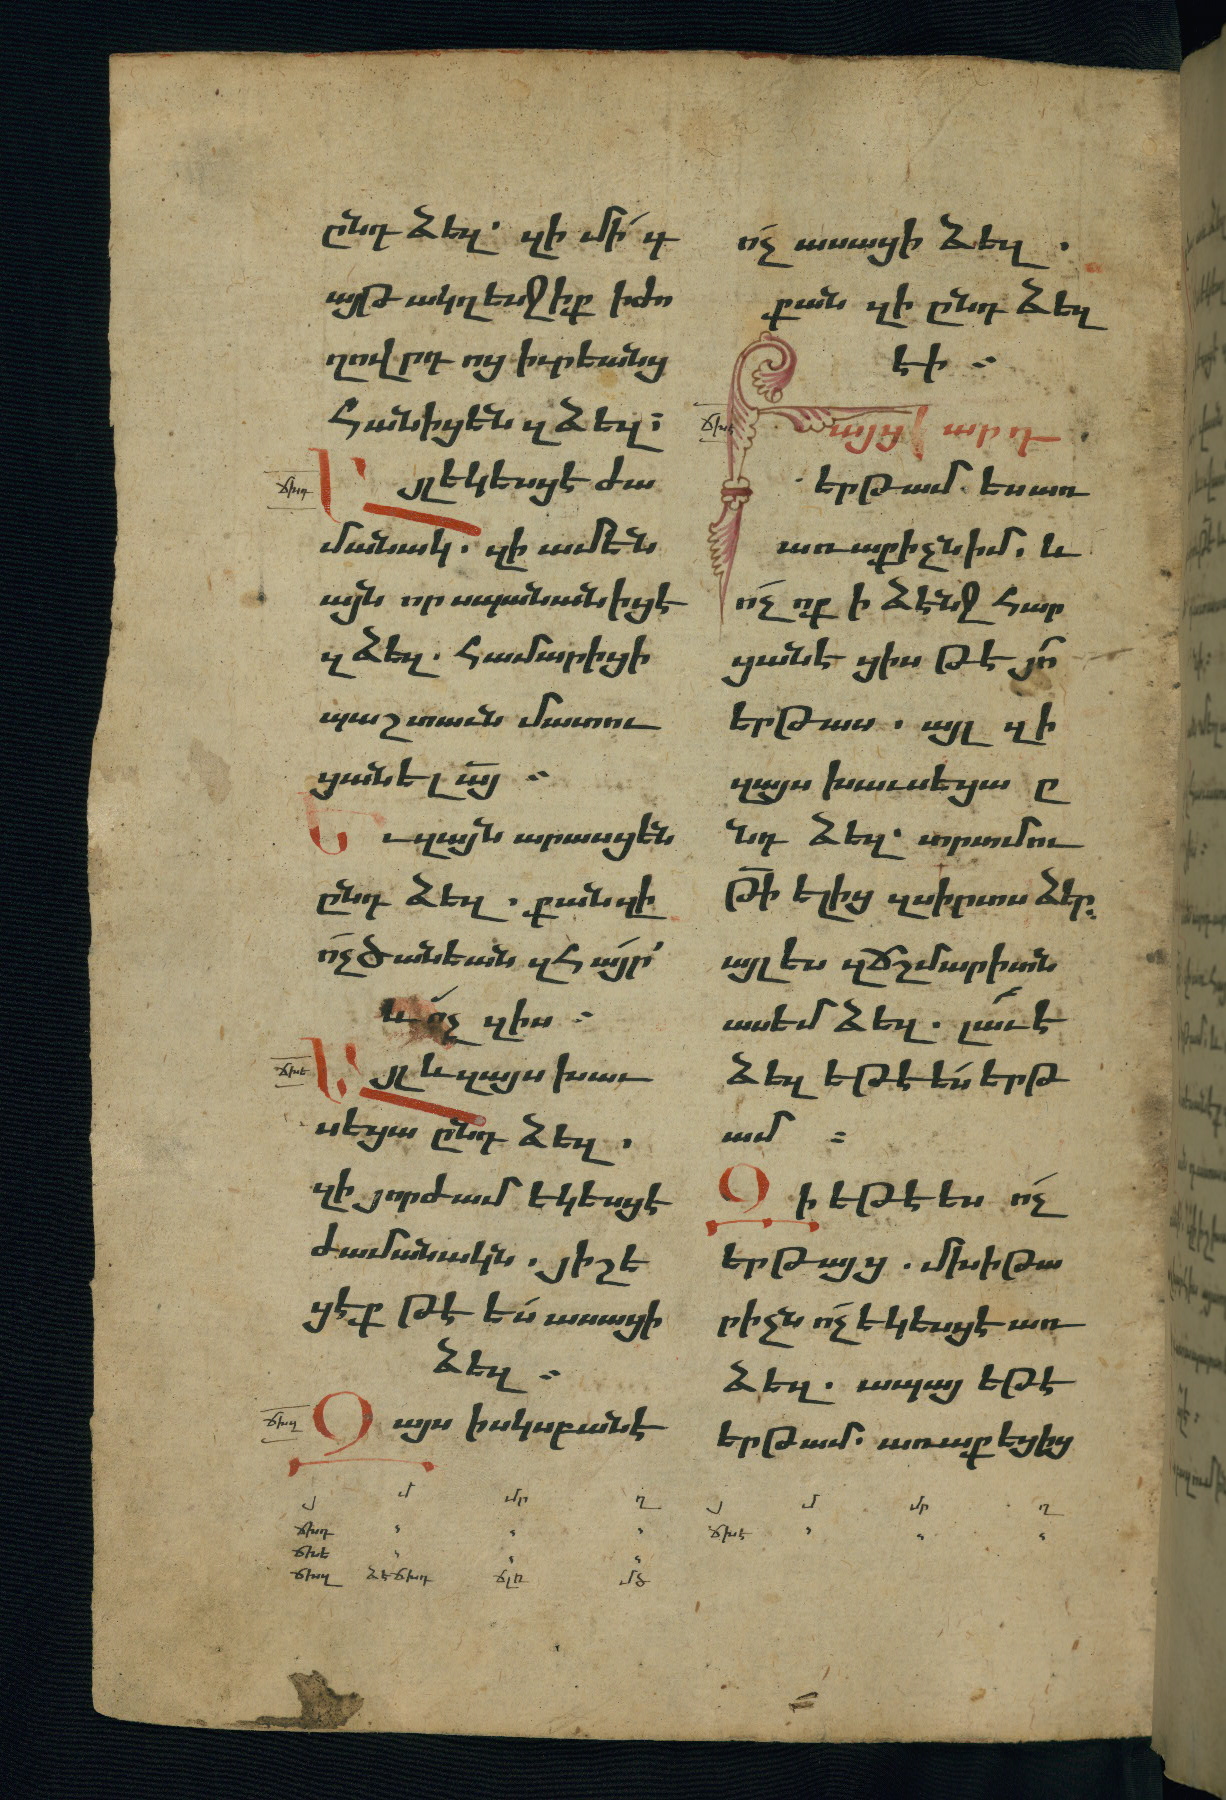 ընդ ձեզ. զի մի՛ գ
այթակղեսջիք ի ժո
ղովրդոց իւրեանց
հանիցեն զձեզ։
ճխդ Այլ եկեսցէ ժա
մանակ. զի ամեն
այն որ սպանանիցէ
զձեզ. համարիցի
պաշտաւն մատու
ցանել ա՟յ ։
Եւ զայն արասցեն
ընդ ձեզ. քանզի
ո՛չ ծանեան զհայր
և ո՛չ զիս ։
ճխե Այլ և զայս խաւ
սեցա ընդ ձեզ.
զի յորժամ եկեսցէ
ժամանակն. յիշե
ցէք թէ ես ասացի
ձեզ ։
ճխզ Զայս ի սկսբանէ
ո՛չ ասացի ձեզ.
քան զի ընդ ձեզ
էի ։
ճխէ արդ.
երթամ ես առ
առաքիչն իմ. և
ո՛չ ոք ի ձէնջ հար
ցանէ ցիս թէ յո՛
երթաս. այլ զի
զայս խաւսեցա ը
նդ ձեզ. տրտմու
թի՟ ելից զսիրտս ձեր.
այլ ես զճշմարիտն
ասեմ ձեզ. լաւ է
ձեզ եթէ ես երթ
ամ ։
Զի եթէ ես ո՛չ
երթայց. մխիթա
րիչն ո՛չ եկեսցէ առ
ձեզ. ապա եթէ
երթամ. առաքեցից
յ մ մր ղ
ճխդ
ճխե
ճխզ
յ մ մր ղ
ճխէ